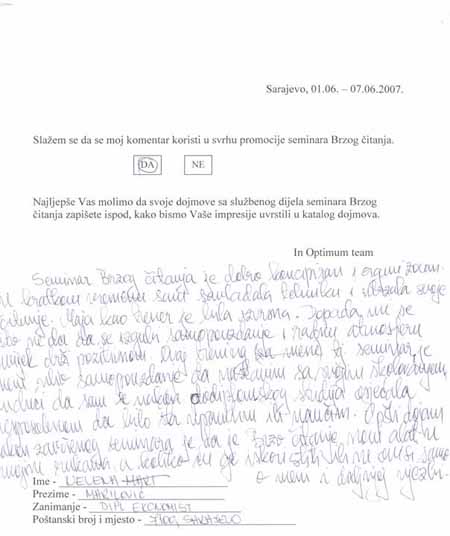 Sarajevo, 01.06. – 07.06.2007.
Slažem se da se moj komentar koristi u svrhu promocije seminara Brzog čitanja.
DA NE
Najljepše Vas molimo da svoje dojmove sa službenog dijela seminara Brzog
čitanja zapišete ispod, kako bismo Vaše impresije uvrstili u katalog dojmova.
In Optimum team
Seminar Brzog čitanja je dobro koncipiran i organizovan.
kratkom vremenu sam savladala tehniku i
Maja kao trener je bila Dopada mi se
što ne da da se izgubi samopouzdanje i radnu atmosferu
drži pozitivnom. Ovaj trening za mene tj. seminar je
samopouzdanje da nastavim sa svojim školovanjem,
da sam se nakon dodiplomskog studija osjećala
da bilo šta ili naučim. Opšti dojam
nakon završenog seminara je da je Brzo čitanje novi alat u
mojim rukama a koliko ću ga iskoristiti samo
o meni i daljnjoj vježbi.
Ime -
Prezime - MARILOVIĆ
Zanimanje - DIPL EKONOMIST
Poštanski broj i mjesto - SARAJEVO